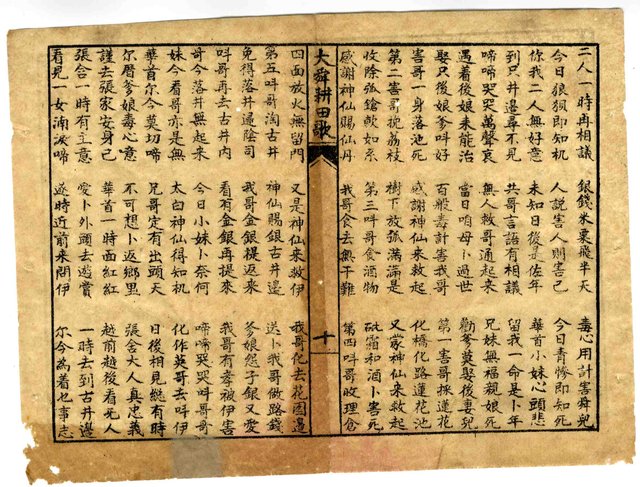 二人一時冉相議 銀錢米粟飛半天 毒心用計害舜兒
今日狼狽即知机 人說害人則害己 今日青慘即知死
你我二人無好意 未知日後是佐年 華首小妹心頭悲
到只井邊尋不見 共哥言語有相議 留我一命是卜年
啼啼哭哭萬聲哀 無人救哥通起來 兄妹無福親娘死
遇着後娘未能治 當日咱母卜過世 勸爹莫娶後妻兒
娶只後娘爹叫好 百般毒計害我哥 第一害哥採蓮花
害哥一身落池死 感謝神仙來救起 化橋化路蓮花池
第二害哥挽荔枝 樹下放弧滿滿是 又蒙神仙來救起
收除弧鎗敢如系 第三呌哥食酒物 砒霜和酒卜害死
感謝神仙賜仙丹 我哥食去無干難 第四呌哥收理倉
大舜耕田歌 十
四面放火無留門 又是神仙來救伊 我哥化去花園邊
第五呌哥淘古井 神仙賜銀古井邊 送卜我哥做路錢
免得落井過陰司 我哥金銀提返來 爹娘怨子銀又愛
呌哥再去古井內 看有金銀再提來 我哥有孝被伊害
哥今落井無起來 今日小妹卜奈何 啼啼哭哭呌哥哥
妹今看哥亦是無 太白神仙得知机 化作英哥去呌伊
華首尔今莫切啼 兄哥定有出頭天 日後相見總有時
尔厝爹娘毒心意 不可想卜返鄉里 張舍大人真忠義
謹去張家安身己 華首一時面紅紅 越前越後看无人
張舍一時有主意 愛卜外頭去遊賞 一時去到古井邊
看見一女滴淚啼 遂時近前來問伊 尔今為着乜事志